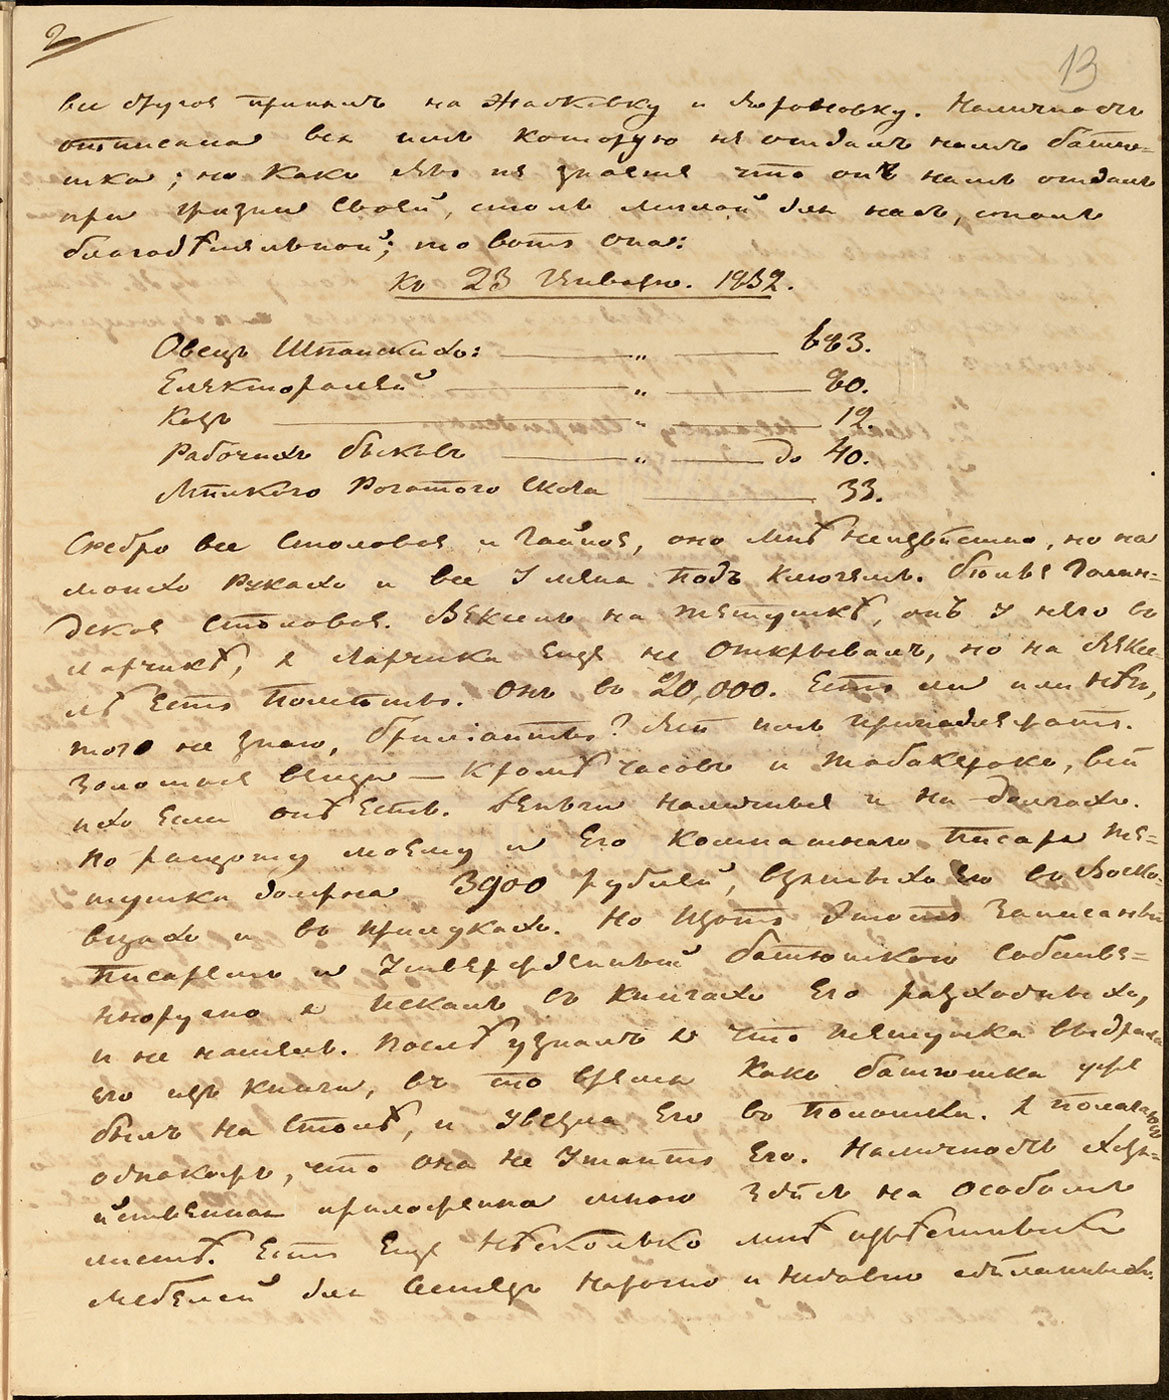 2
13
все другое принялъ на Жадковку и Вороновку. Наличность
отписана вся имъ которую не отдалъ намъ батю-
шка; но какъ я не знаете что онъ намъ отдалъ
при жизни своей, столь милой для насъ, столь
благодѣтельной; то вотъ она:
Къ 23 Генварю. 1832.
Овецъ Шпанскихъ: — „ — 683.
Електоралей — „ — 80.
Козъ — „ — 12.
Рабочихъ быковъ — „ — до 40.
Мѣлкого Рогатого Скота — 33.
Серебро все столовое и чайное, оно мнѣ неизвѣстно, но на
моихъ рукахъ и все у меня подъ ключемъ. бѣлье Голан-
дское столовое. Вексель на тетушкѣ, онъ у него въ
ларчикѣ, я ларчика еще не открывалъ, но на Вексе-
лѣ есть помѣты. Онъ въ 20,000. Есть ли или нѣтъ,
того не знаю, брилiанты? Всѣ имъ принадлежатъ.
Золотыя вещи — кромѣ часовъ и табакерокъ, всѣ
ихъ если онѣ есть. Деньги наличныя и на долгахъ.
По разщоту моему и его комнатнаго писаря те-
тушка должна 3900 рублей, взятыхъ ею въ Воско-
вцахъ и въ Прилукахъ. Но щотъ этотъ записанный
писаремъ и утвержденный батюшкою собстве-
нноручно я искалъ въ книгахъ его разходныхъ,
и не нашелъ. Послѣ узналъ я что тетушка выдрала
его изъ книги, въ то время какъ батюшка уже
былъ на столѣ, и увезла его въ Полошки. Я полагаю
однакожъ, что она не утаитъ его. Наличность хозя-
йственная приложенна мною здѣсь на особомъ
листѣ. Есть еще нѣсколько мнѣ извѣстныхъ
мебелей для сестеръ нарочно и недавно сдѣланныхъ.